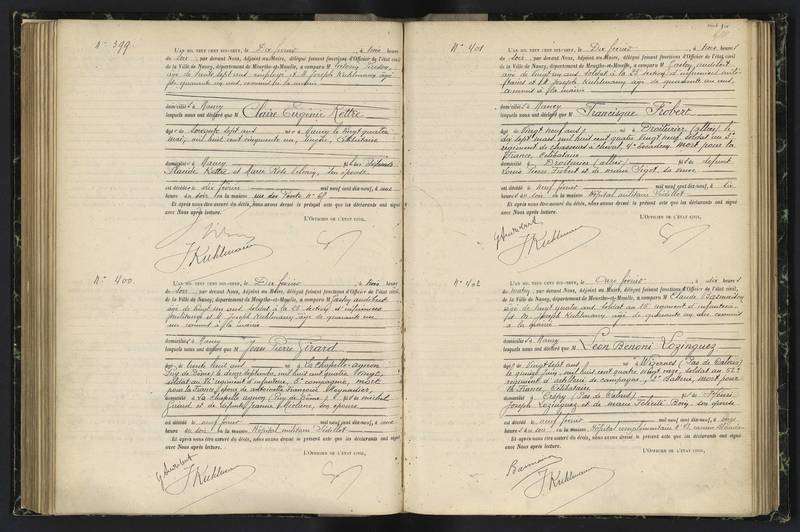 N° 399.
L'AN MIL NEUF CENT DIX-NEUF, le Dix février, à trois heures
du soir, par devant Nous, Adjoint au Maire, délégué faisant fonctions d'Officier de l'état civil
de la Ville de Nancy, département de Meurthe-et-Moselle, a comparu M
âgé de trente sept ans employé et M Joseph Kuhlmann âgé
de quarante un ans commis à la mairie
domiciliés à Nancy
lesquels nous ont déclaré que M Claire Eugénie Rettre
âgé de soixante sept ans né à Nancy le vingt quatre
mai, mil huit cent cinquante un, lingère, Célibataire
domiciliée à Nancy fille des défunts
Claude Rettre et Marie Rose son épouse
est décédée le dix février mil neuf cent dix-neuf, à une
heure du soir en la maison rue des Ponts N° 68
Et après nous être assuré du décès, nous avons dressé le présent acte que les déclarants ont signé
avec Nous après lecture.
L'OFFICIER DE L'ÉTAT CIVIL,
J Kuhlmann
N° 400.
L'AN MIL NEUF CENT DIX-NEUF, le Dix février, à trois heures
du soir, par devant Nous, Adjoint au Maire, délégué faisant fonctions d'Officier de l'état civil
de la Ville de Nancy, département de Meurthe-et-Moselle, a comparu M
âgé de vingt un ans soldat à la 23 section d'infirmiers
militaires et M Joseph Kuhlmann âgé de quarante un
ans commis à la mairie
domiciliés à Nancy
lesquels nous ont déclaré que M Jean Pierre Gérard
âgé de trente huit ans né à La Chapelle-agnon
(Puy de Dôme) le douze septembre mil huit cent quatre vingt
soldat au régiment d'infanterie, compagnie, mort
pour la France, époux de Antoinette Françoise
domicilié à La Chapelle agnon (Puy de Dôme) fils de Michel
Gérard et de défunte Jeanne son épouse
est décédé le neuf février mil neuf cent dix-neuf, à onze
heures du soir en la maison Hôpital militaire Sédillot
Et après nous être assuré du décès, nous avons dressé le présent acte que les déclarants ont signé
avec Nous après lecture.
L'OFFICIER DE L'ÉTAT CIVIL,
J Kuhlmann
N° 401
L'AN MIL NEUF CENT DIX-NEUF, le Dix février, à trois heures
du soir, par devant Nous, Adjoint au Maire, délégué faisant fonctions d'Officier de l'état civil
de la Ville de Nancy, département de Meurthe-et-Moselle, a comparu M
âgé de vingt un ans soldat à la 23 section d'infirmiers mili-
taires et M Joseph Kuhlmann âgé de quarante un ans,
commis à la mairie
domiciliés à Nancy
lesquels nous ont déclaré que M Francisque Frobert
âgé de vingt neuf ans né à Droiturier (allier) le
dix sept mars mil huit cent quatre vingt neuf, soldat au
régiment de chasseurs à cheval, escadron mort pour la
France, célibataire
domicilié à Droiturier (allier) fils de défunt
Louis Pierre Frobert et de Marie Pigot sa veuve
est décédé le neuf février mil neuf cent dix-neuf, à six
heures du soir en la maison Hôpital militaire Sédillot
Et après nous être assuré du décès, nous avons dressé le présent acte que les déclarants ont signé
avec Nous après lecture.
L'OFFICIER DE L'ÉTAT CIVIL,
J Kuhlmann
N° 402
L'AN MIL NEUF CENT DIX-NEUF, le Onze février, à dix heures
du matin, par devant Nous, Adjoint au Maire, délégué faisant fonctions d'Officier de l'état civil
de la Ville de Nancy, département de Meurthe-et-Moselle, a comparu M Claude
âgé de vingt quatre ans soldat au régiment d'infanterie
et M Joseph Kuhlmann âgé de quarante un ans commis
à la mairie
domiciliés à Nancy
lesquels nous ont déclaré que M Léon Benoni Lozinguez
âgé de vingt sept ans né à Wizernes (Pas de Calais)
le quinze juin, mil huit cent quatre vingt onze, soldat au
régiment d'artillerie de campagne, Batterie, mort pour
la France, Célibataire
domicilié à Crépy (Pas de Calais) fils de
Joseph Lozinguez et de Marie Félicité son épouse
est décédé le neuf février mil neuf cent dix-neuf, à onze
heures du soir en la maison Hôpital complémentaire
Et après nous être assuré du décès, nous avons dressé le présent acte que les déclarants ont signé
avec Nous après lecture.
L'OFFICIER DE L'ÉTAT CIVIL,
J Kuhlmann